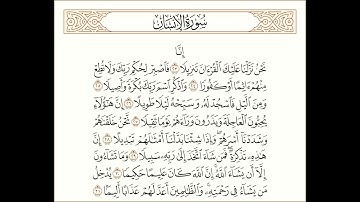 سُورَةُ الإِنسَان
إِنَّا
نَحْنُ نَزَّلْنَا عَلَيْكَ الْقُرْءَانَ تَنزِيلًا ٢٣ فَاصْبِرْ لِحُكْمِ رَبِّكَ وَلَا تُطِعْ
مِنْهُمْ ءَاثِمًا أَوْ كَفُورًا ٢٤ وَاذْكُرِ اسْمَ رَبِّكَ بُكْرَةً وَأَصِيلًا ٢٥
وَمِنَ الَّيْلِ فَاسْجُدْ لَهُ وَسَبِّحْهُ لَيْلًا طَوِيلًا ٢٦ إِنَّ هَٰؤُلَاءِ
يُحِبُّونَ الْعَاجِلَةَ وَيَذَرُونَ وَرَاءَهُمْ يَوْمًا ثَقِيلًا ٢٧ نَّحْنُ خَلَقْنَاهُمْ
وَشَدَدْنَا أَسْرَهُمْ وَإِذَا شِئْنَا بَدَّلْنَا أَمْثَالَهُمْ تَبْدِيلًا ٢٨ إِنَّ
هَٰذِهِ تَذْكِرَةٌ فَمَن شَاءَ اتَّخَذَ إِلَىٰ رَبِّهِ سَبِيلًا ٢٩ وَمَا تَشَاءُونَ
إِلَّا أَن يَشَاءَ اللَّهُ إِنَّ اللَّهَ كَانَ عَلِيمًا حَكِيمًا ٣٠ يُدْخِلُ
مَن يَشَاءُ فِي رَحْمَتِهِ وَالظَّالِمِينَ أَعَدَّ لَهُمْ عَذَابًا أَلِيمًا ٣١